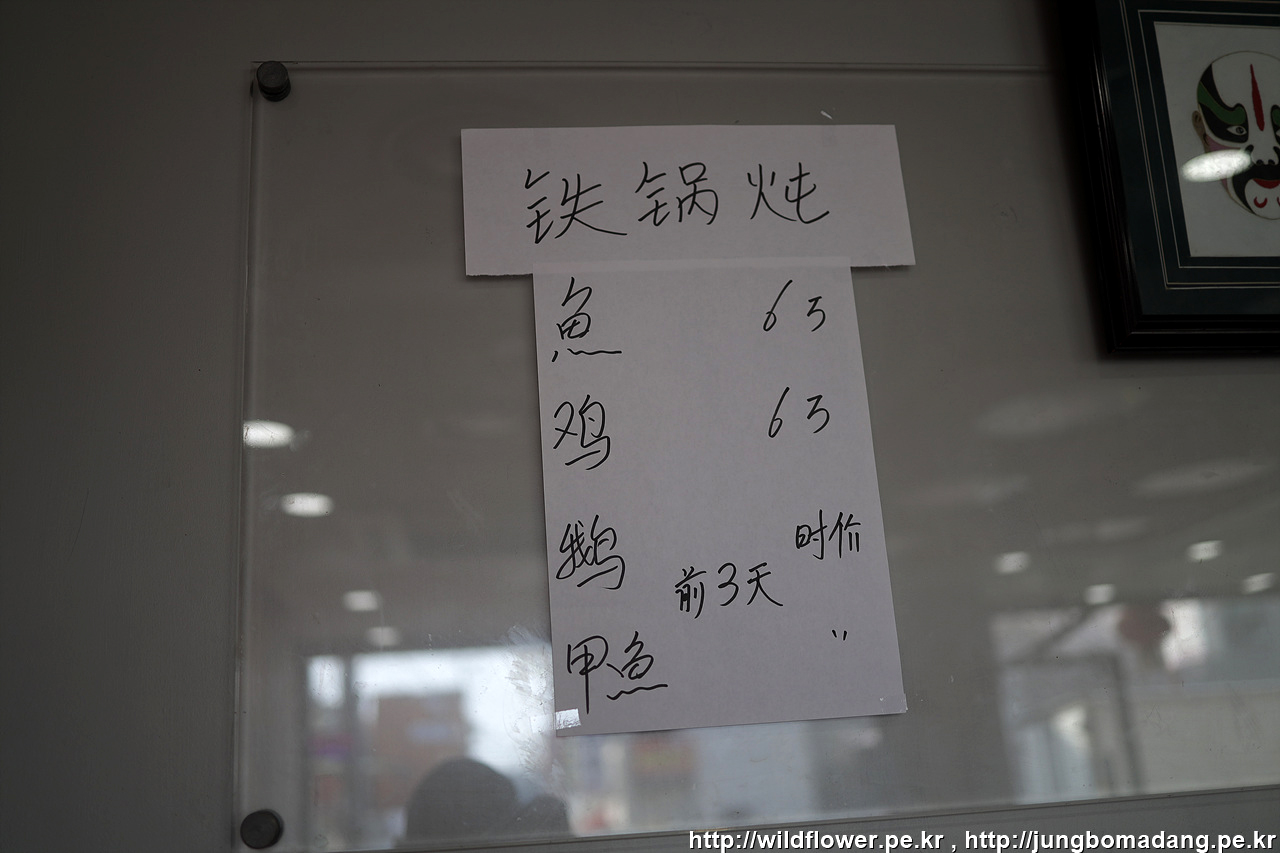 铁锅炖
魚 6万
鸡 6万
鹅 时价
前3天
甲魚 "
http://wildflower.pe.kr , http://jungbomadang.pe.kr